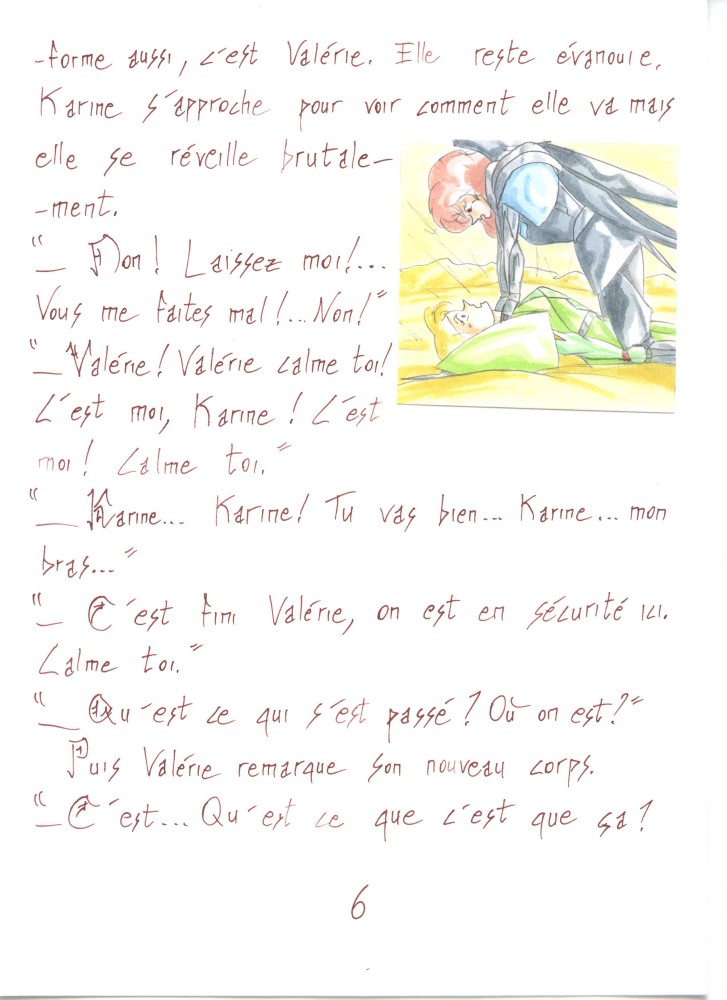 -forme aussi, c'est Valérie. Elle reste évanouie.
Karine s'approche pour voir comment elle va mais
elle se réveille brutale-
-ment.
"_ Non! Laissez moi!...
Vous me faites mal!...Non!"
"_ Valérie! Valérie calme toi!
C'est moi, Karine! C'est
moi! Calme toi."
"_ Karine... Karine! Tu vas bien... Karine... mon
bras..."
"_ C'est fini Valérie, on est en sécurité ici.
Calme toi."
"_ Qu'est ce qui s'est passé? Où on est?"
Puis Valérie remarque son nouveau corps.
"_ C'est... Qu'est ce que c'est que ça?
6